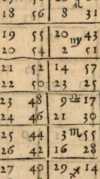 18 56 8 31
19 55 20 ♍ 43
20 54 2 51
21 52 14 57
22 50 23 25
23 48 9 ♎ 17
24 46 21 30
25 44 3 ♏ 55
26 42 16 28
27 40 29 ♐ 14